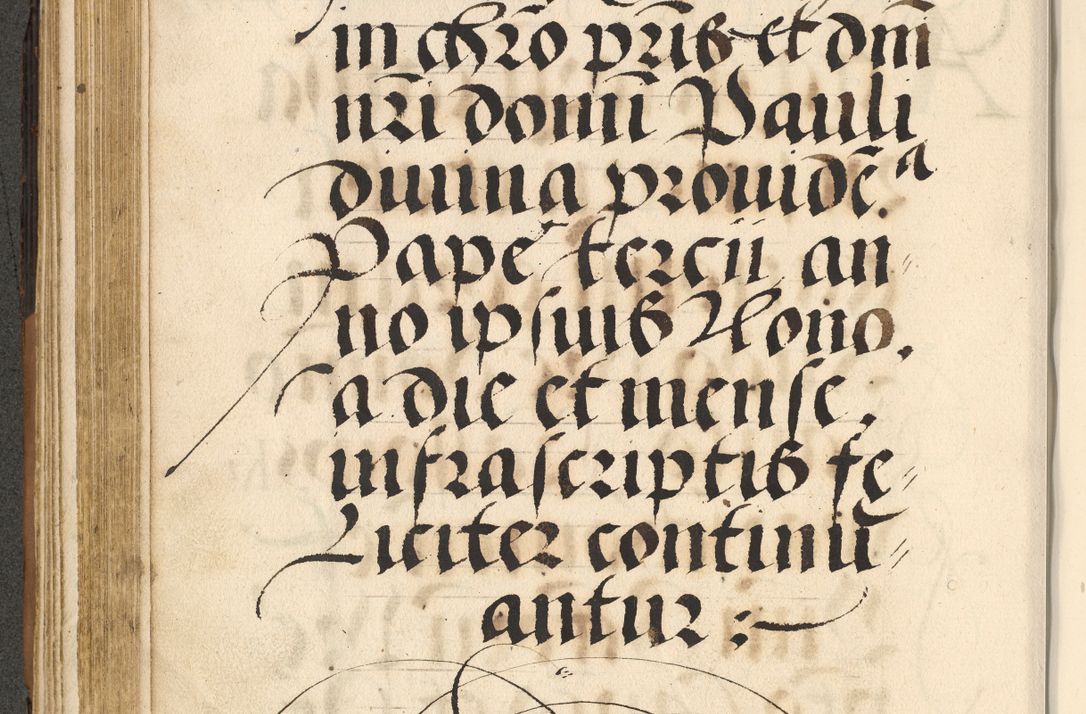 in chr̄o pr̄is et dn̄i
nr̄i domī Pauli
diuina prouidē.ᵃ
Pape tercii an
no ipsius Nono.
a die et mense.
infrascriptis fe
Liciter continu
antur :~